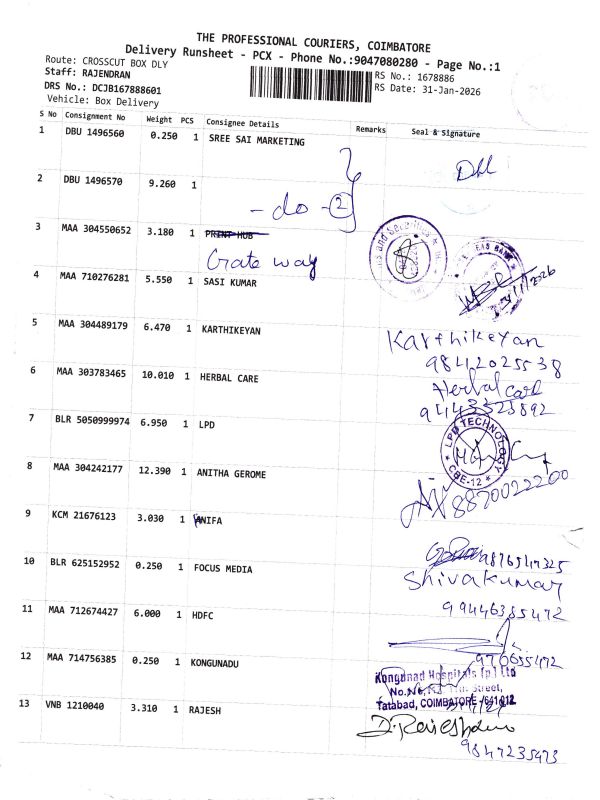 THE PROFESSIONAL COURIERS, COIMBATORE
Delivery Runsheet - PCX - Phone No.:9047080280 - Page No.:1
Route: CROSSCUT BOX DLY
Staff: RAJENDRAN
DRS No.: DCJB167888601
Vehicle: Box Delivery
RS No.: 1678886
RS Date: 31-Jan-2026
S No Consignment No Weight PCS Consignee Details Remarks Seal & Signature
1 DBU 1496560 0.250 1 SREE SAI MARKETING
2 DBU 1496570 9.260 1
- do - 2
3 MAA 304550652 3.180 1 PRINT HUB
Gate way
4 MAA 710276281 5.550 1 SASI KUMAR
5 MAA 304489179 6.470 1 KARTHIKEYAN Karthikeyan
9842025538
6 MAA 303783465 10.010 1 HERBAL CARE Herbal care
9443523892
7 BLR 5050999974 6.950 1 LPD
LPD TECHNOLOGY
CBE-12
8 MAA 304242177 12.390 1 ANITHA GEROME
8870022200
9 KCM 21676123 3.030 1 ANIFA
9876547325
10 BLR 625152952 0.250 1 FOCUS MEDIA Shivakumar
99446385472
11 MAA 712674427 6.000 1 HDFC
976655472
12 MAA 714756385 0.250 1 KONGUNADU
Kongunad Hospitals (p) Ltd
Street,
Tatabad, COIMBATORE - 641 012
13 VNB 1210040 3.310 1 RAJESH
9847235473